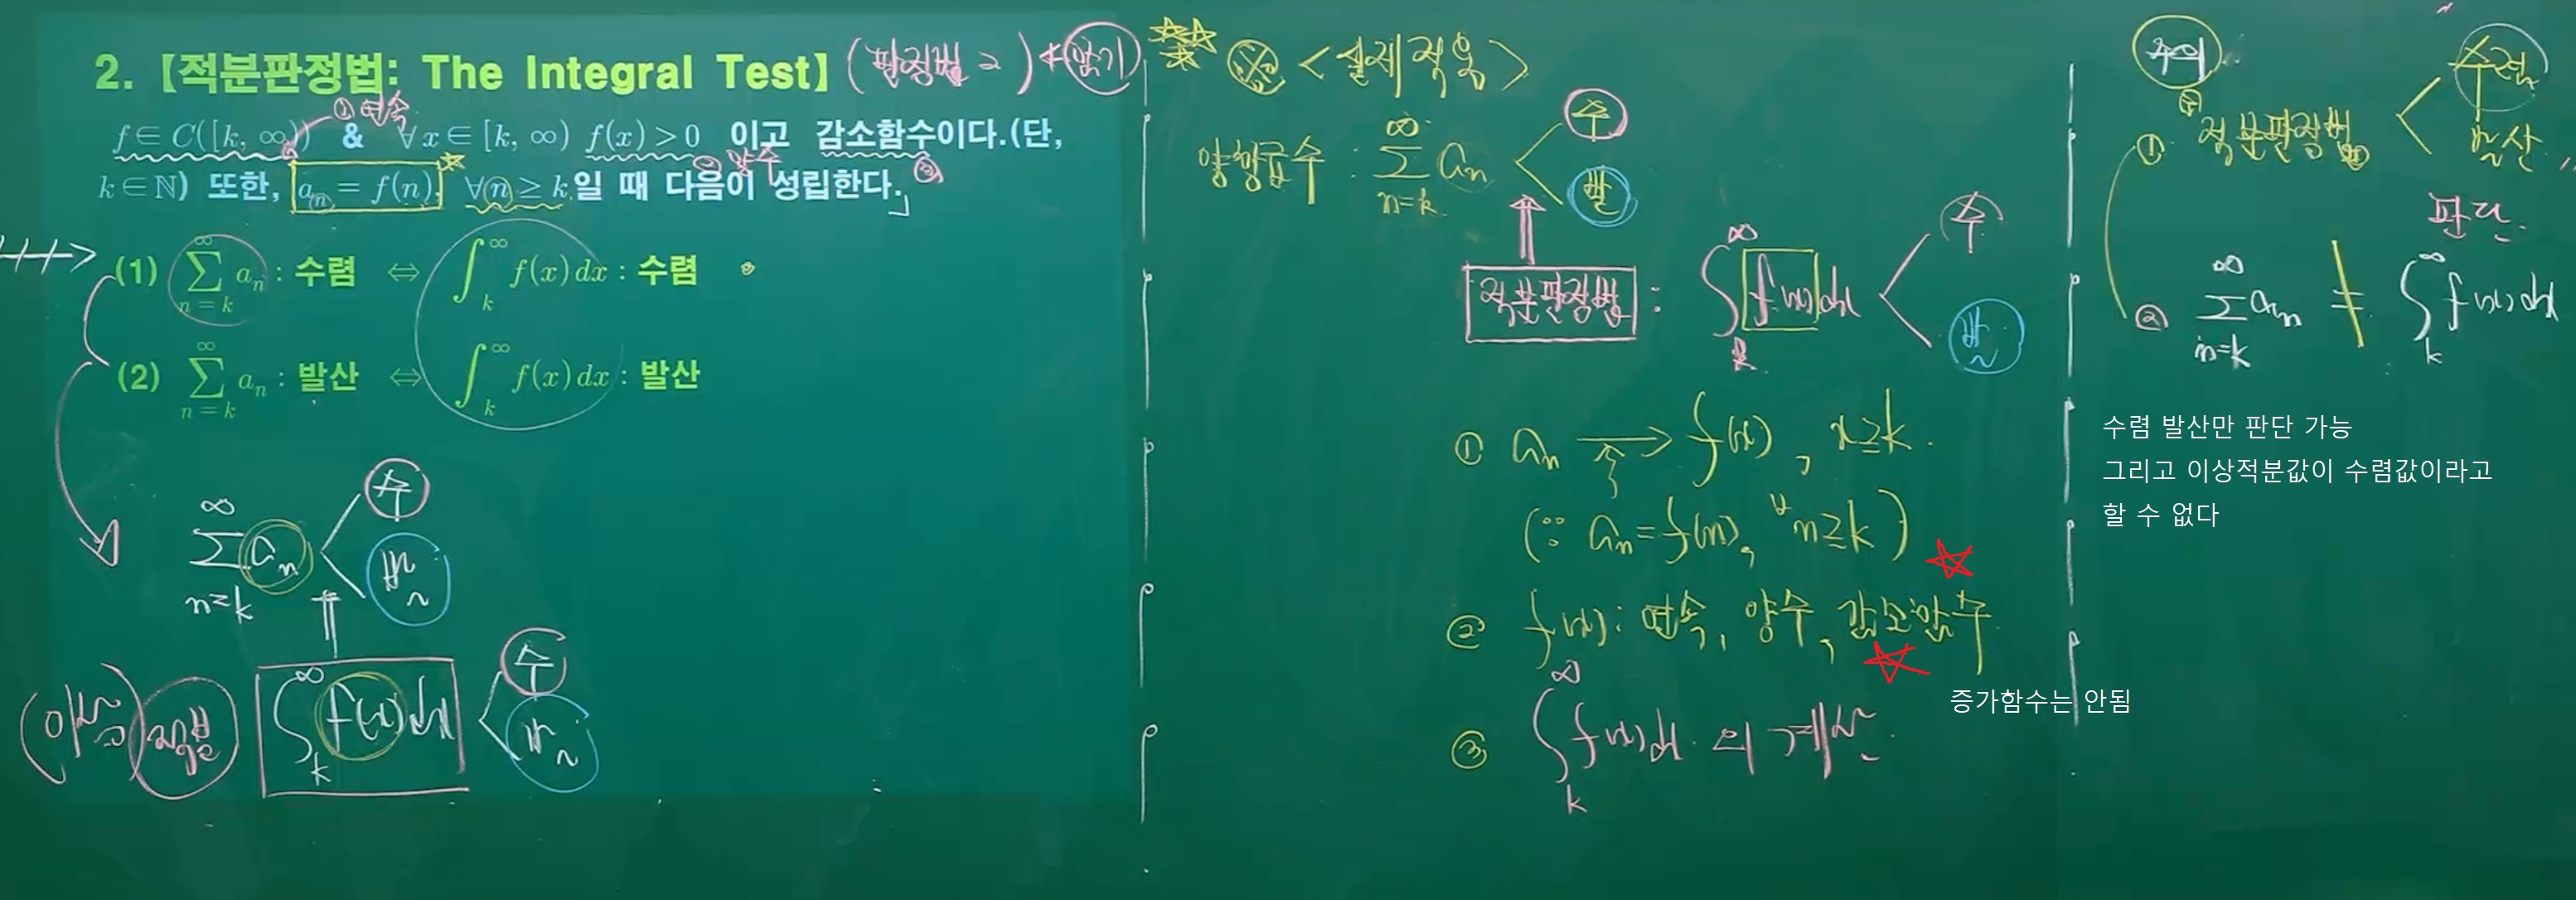 2. 【적분판정법: The Integral Test】 (판정법 2) * 암기
① 연속
f ∈ C([k, ∞)) & ∀x ∈ [k, ∞) f(x) > 0 이고 감소함수이다.(단,
② 양수 ③
k ∈ ℕ) 또한, aₙ = f(n), ∀n ≥ k 일 때 다음이 성립한다.」
(1) ∑_{n=k}^{∞} aₙ : 수렴 ⇔ ∫_k^∞ f(x)dx : 수렴
(2) ∑_{n=k}^{∞} aₙ : 발산 ⇔ ∫_k^∞ f(x)dx : 발산
∑_{n=k}^{∞} aₙ < 수 발산
⇑
(이상)적분 ∫_k^∞ f(x)dx < 수 발산
<실제 적용>
양항급수 : ∑_{n=k}^{∞} aₙ < 수 발
⇑
적분판정법 : ∫_k^∞ f(x)dx < 수 발산
① aₙ → f(x), x≥k.
(∵ aₙ = f(n), ∀n≥k)
② f(x): 연속, 양수, 감소함수
증가함수는 안됨
③ ∫_k^∞ f(x)dx 의 계산.
주의
① 적분판정법 < 수렴 발산
판단.
② ∑_{n=k}^{∞} aₙ ≠ ∫_k^∞ f(x)dx
수렴 발산만 판단 가능
그리고 이상적분값이 수렴값이라고
할 수 없다